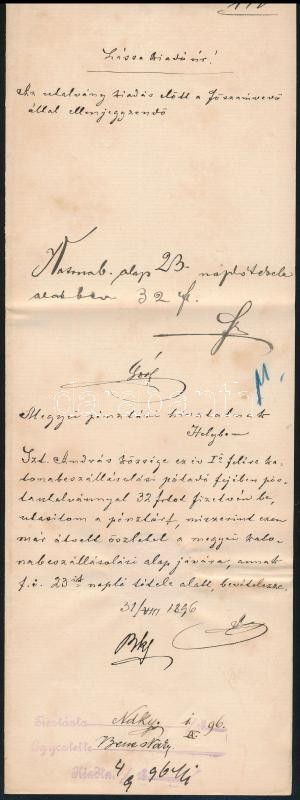 Lássa Kiadó úr!
Az utalvány kiadás előtt a Főszámvevő
által ellenjegyzendő
alap 23 naplótétele
alatt bev 32 f.
Megyei pénztári hivatalnak
Helyben
Szt. András községe ez év I. felére ka-
tonabeszállásolási pótadó fejében pos-
tautalvánnyal 32 frtot fizetvén be,
utasítom a pénztárt, miszerint ezen
már átvett összletet a megyei kato-
nabeszállásolási alap javára, annak
f. é. 23ik napló tétele alatt, bevételezze.
31/VIII 1896
Tisztázta
Egyeztette
Kiadta
4/9 96